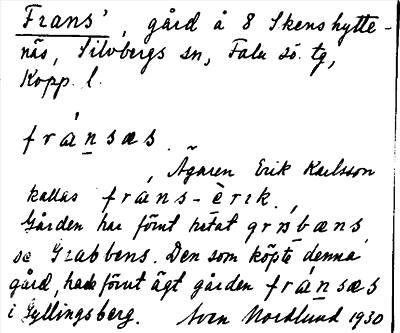 Frans', gård å 8 Skenshytte-
näs, Silvbergs sn, Falu sö. tg,
Kopp. l.
fránsæs.
Ägaren Erik Karlsson
kallas fráns-èrɪk.
Gården har förut hetat grábæns,
se Grabbens. Den som köpte denna
gård, hade förut ägt gården fránsæs
i Gyllingsberg. Sven Nordlund 1930